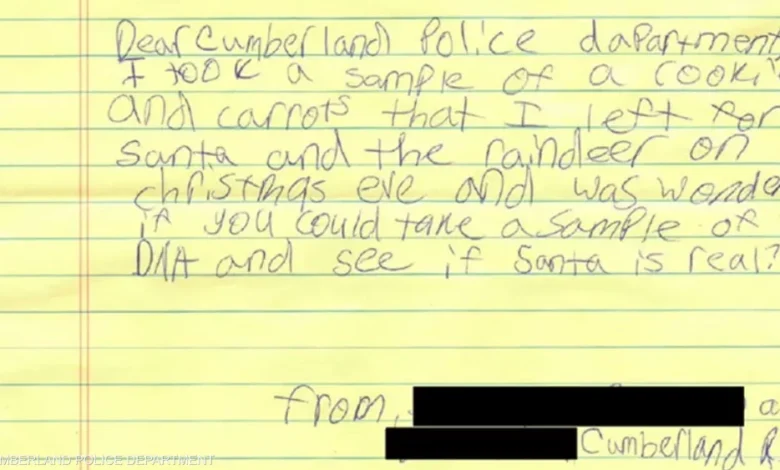 Dear Cumberland Police dapartment
I took a sample of a cooki
and carrots that I left for
Santa and the raindeer on
christmas eve and was wonde
if you could take a sample of
DNA and see if Santa is real?
from, a
Cumberland R
MBERLAND POLICE DEPARTMENT